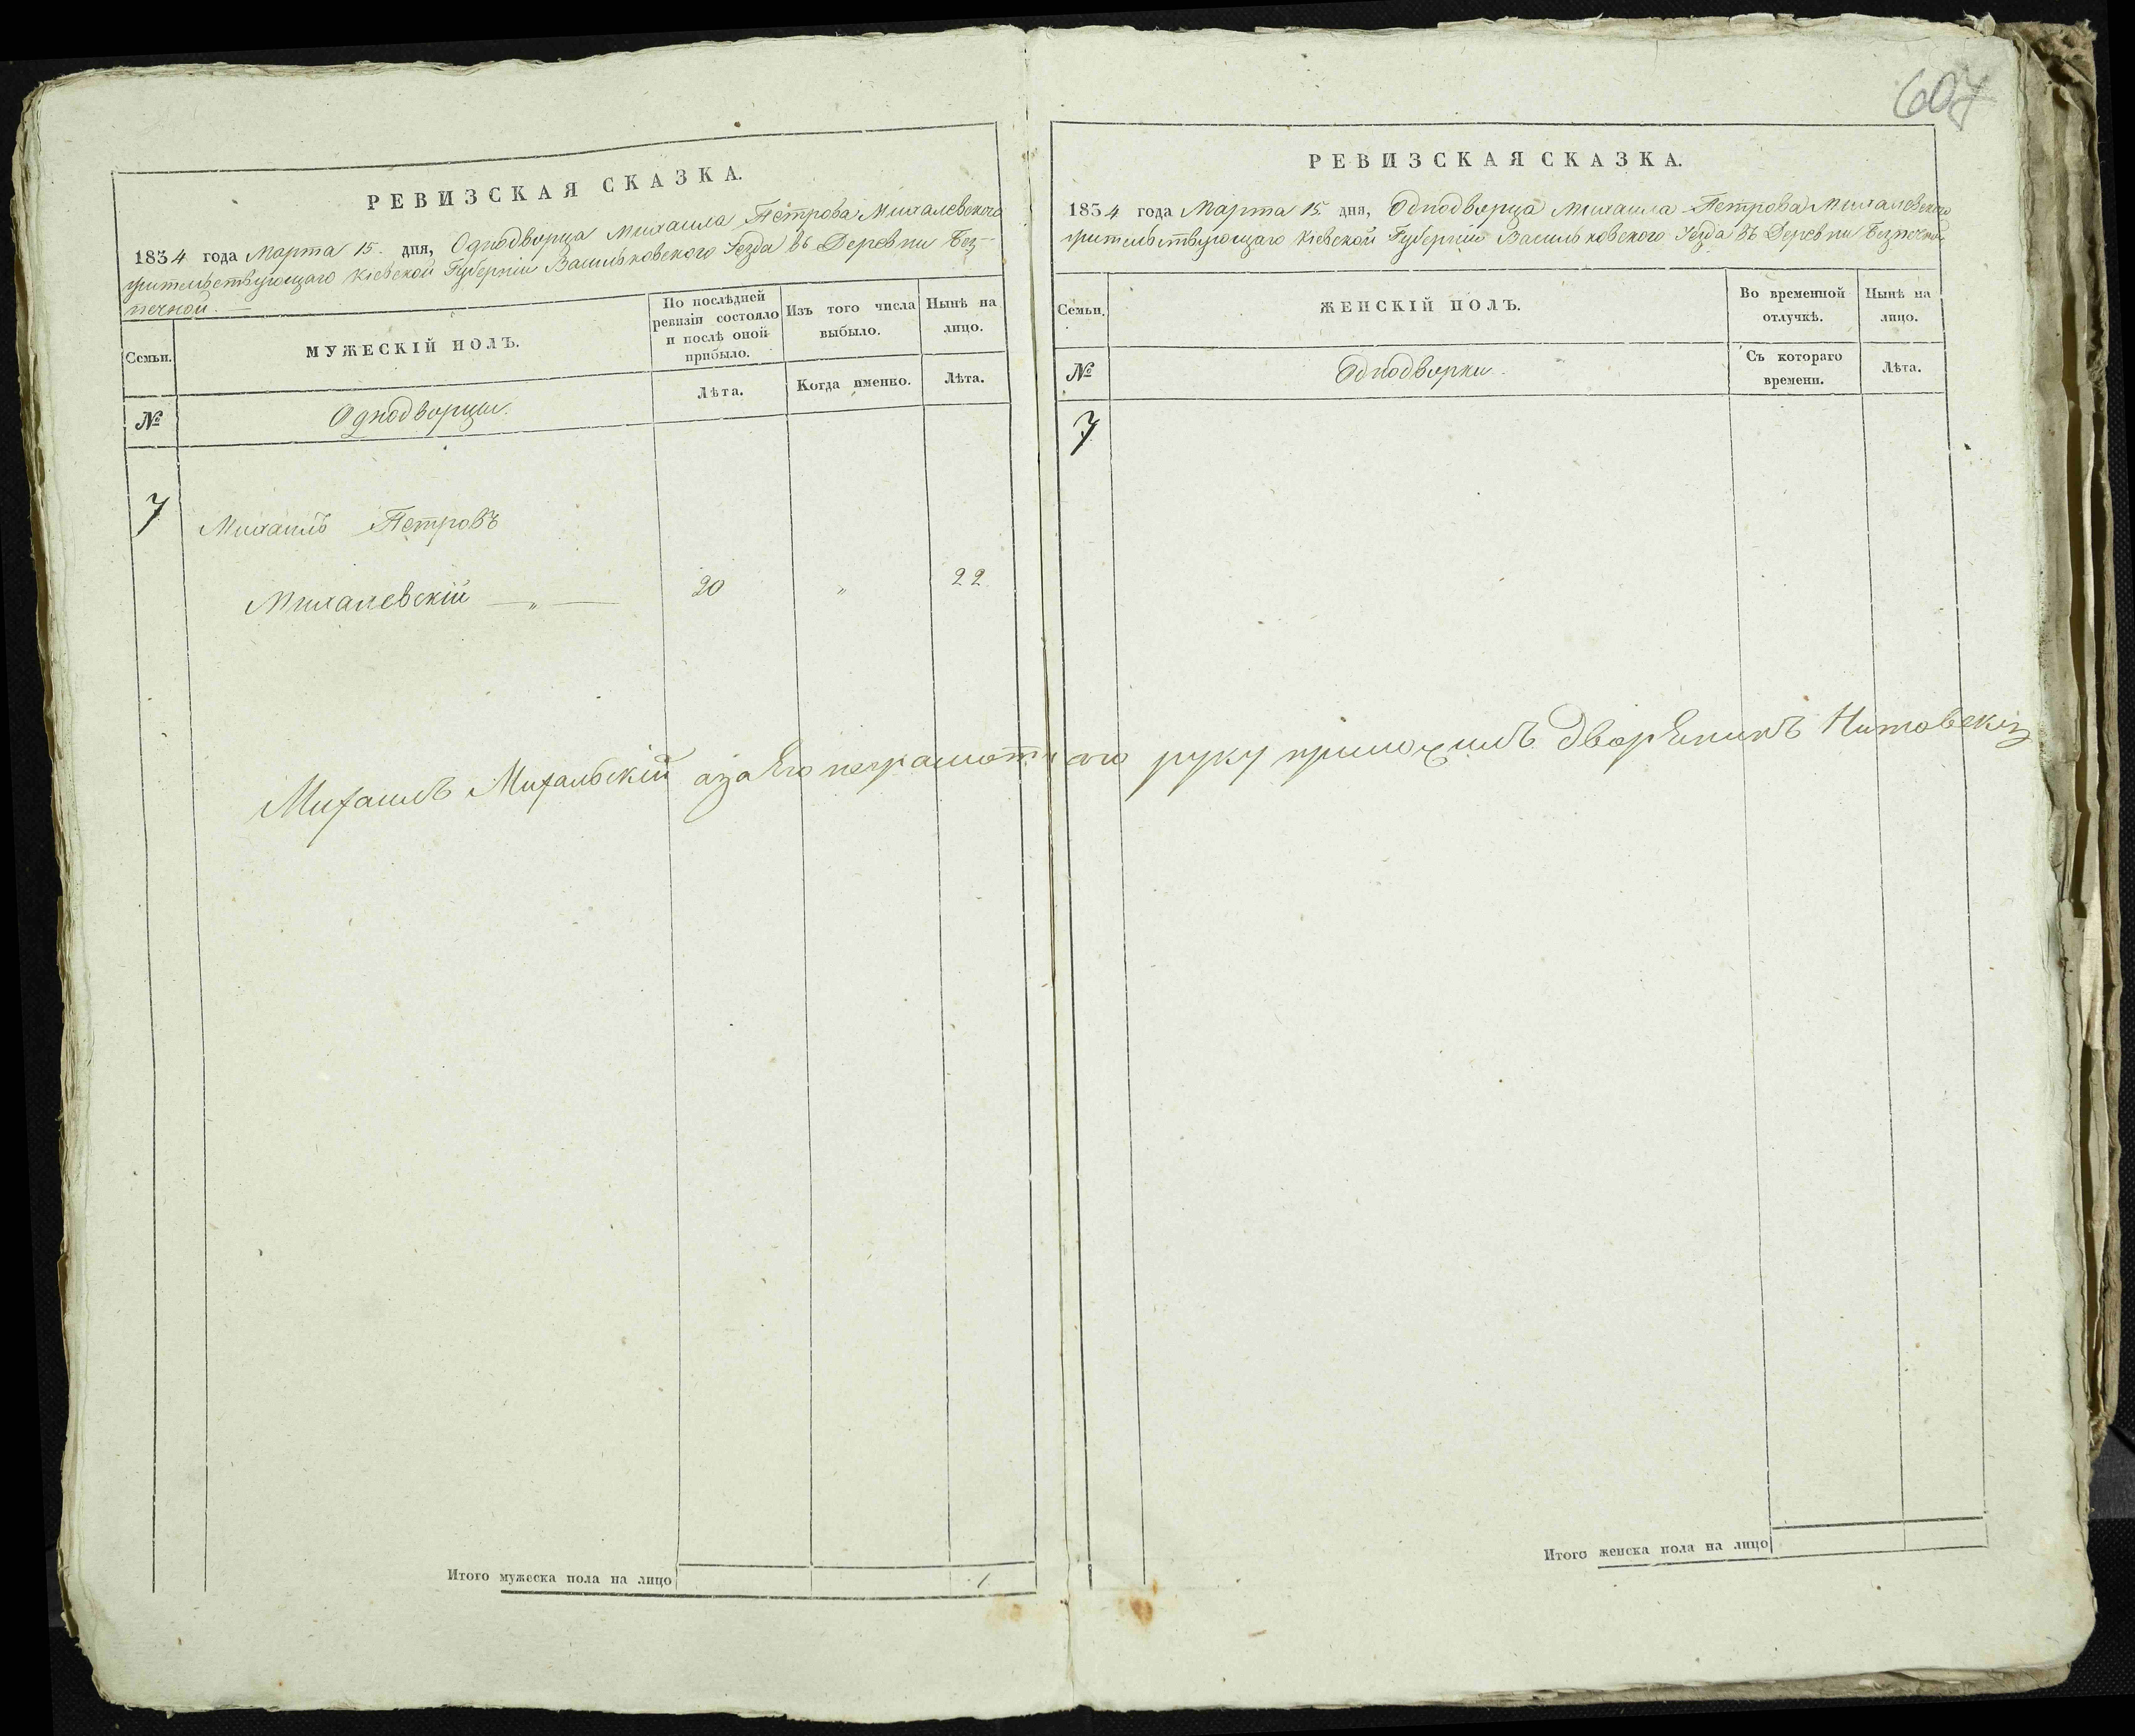 607
РЕВИЗСКАЯ СКАЗКА.
1834 года Марта 15. дня, Однодворца Михаила Петрова Михалевского
жительствующаго Кіевской Губерніи Васильковского Уезда въ Деревни Без-
печной.
Семьи.
МУЖЕСКІЙ ПОЛЪ.
По послѣдней ревизіи состояло и послѣ оной прибыло.
Изъ того числа выбыло.
Нынѣ на лицо.
№
Однодворцы.
Лѣта.
Когда именно.
Лѣта.
7
Михаилъ Петровъ
Михалевскій — „ — 20 „ 22
Итого мужеска пола на лицо 1
РЕВИЗСКАЯ СКАЗКА.
1834 года Марта 15. дня, Однодворца Михаила Петрова Михалевского
жительствующаго Кіевской Губерніи Васильковского Уезда въ Деревни Безпечной
Семьи.
ЖЕНСКІЙ ПОЛЪ.
Во временной отлучкѣ.
Нынѣ на лицо.
№
Однодворки.
Съ котораго времени.
Лѣта.
7
Михаилъ Михальскій азаего неграмотного руку приложилъ дворянинъ
Итого женска пола на лицо